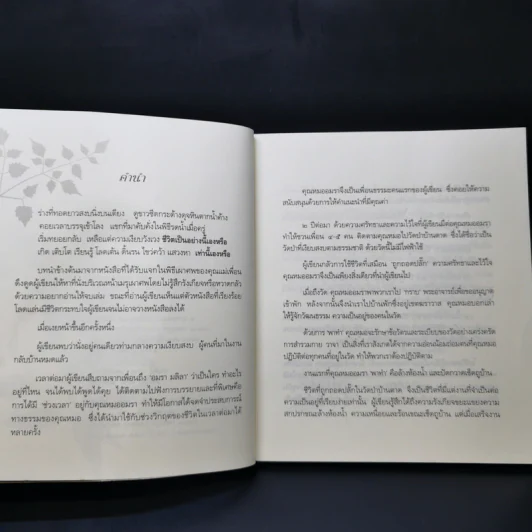 คำนำ
ร่างที่ทอดยาวสงบนิ่งบนเตียง ดูขาวซีดกระด้างดุจหินตากน้ำค้าง
คอยเวลาบรรจุเข้าโลง แขกที่มาคับคั่งในพิธีรดน้ำเมื่อครู่
เริ่มทยอยกลับ เหลือแต่ความเงียบวังเวง ชีวิตเป็นอย่างนี้เองหรือ
เกิด เติบโต เรียนรู้ โลดเต้น ดิ้นรน ไขว่คว้า แสวงหา เท่านี้เองหรือ
บทหน้าข้างต้นมาจากหนังสือที่ได้รับแจกในพิธีเผาศพของคุณแม่เพื่อน
ดึงดูดผู้เขียนให้หาที่นั่งบริเวณหน้าเมรุเผาศพโดยไม่รู้สึกรังเกียจหรือหวาดกลัว
ด้วยความอยากอ่านให้จบเล่ม ขณะที่อ่านผู้เขียนเห็นแต่ตัวหนังสือที่เรียงร้อย
โลดแล่นมีชีวิตกระทบใจผู้เขียนจนไม่อาจวางหนังสือลงได้
เมื่อเงยหน้าขึ้นอีกครั้งหนึ่ง
ผู้เขียนพบว่านั่งอยู่คนเดียวท่ามกลางความเงียบสงบ ผู้คนที่มาในงาน
กลับบ้านหมดแล้ว
เวลาต่อมาผู้เขียนสืบถามจากเพื่อนถึง 'อมรา มลิลา' ว่าเป็นใคร ทำอะไร
อยู่ที่ไหน จนได้พบได้พูดได้คุย ได้ติดตามไปฟังการบรรยายและที่พิเศษคือ
การได้มี 'ช่วงเวลา' อยู่กับคุณหมออมรา ทำให้มีโอกาสได้จดจำประสบการณ์
ทางธรรมของคุณหมอ ซึ่งได้นำมาใช้กับช่วงวิกฤตของชีวิตในเวลาต่อมาได้
หลายครั้ง
คุณหมออมราจึงเป็นเพื่อนธรรมะคนแรกของผู้เขียน ซึ่งคอยให้ความ
สนับสนุนด้วยการให้คำแนะนำที่มีคุณค่า
๒ ปีต่อมา ด้วยความศรัทธาและความไว้ใจที่ผู้เขียนมีต่อคุณหมออมรา
ทำให้ชวนเพื่อน ๔-๕ คน ติดตามคุณหมอไปวัดป่าบ้านตาด ซึ่งได้ชื่อว่าเป็น
วัดป่าที่เงียบสงบตามธรรมชาติ ด้วยวัดนี้ไม่มีไฟฟ้าใช้
ผู้เขียนกลัวการใช้ชีวิตที่เสมือน ถูกถอดปลั๊ก ความศรัทธาและไว้ใจ
คุณหมออมราจึงเป็นเพียงสิ่งเดียวที่นำผู้เขียนไป
เมื่อถึงวัด คุณหมออมราพาพวกเราไป 'กราบ' พระอาจารย์เพื่อขออนุญาต
เข้าพัก หลังจากนั้นจึงนำเราไปบ้านพักซึ่งอยู่เขตฆราวาส คุณหมอบอกเล่า
ให้รู้จักวัฒนธรรม ความเป็นอยู่ของคนในวัด
ด้วยการ 'พาทำ' คุณหมอจะรักษาข้อวัตรและระเบียบของวัดอย่างเคร่งครัด
การสำรวมกาย วาจา เป็นสิ่งที่เราสังเกตได้จากความอ่อนน้อมถ่อมตนที่คุณหมอ
ปฏิบัติต่อทุกคนที่อยู่ในวัด ทำให้พวกเราต้องปฏิบัติตาม
งานแรกที่คุณหมอพา 'พาทำ' คือล้างห้องน้ำ และปัดกวาดเช็ดถูบ้าน
ชีวิตที่ถูกถอดปลั๊กในวัดป่าบ้านตาด จึงเป็นชีวิตที่มีแต่งานที่จำเป็นต่อ
ความเป็นอยู่ที่เรียบง่ายเท่านั้น ผู้เขียนรู้สึกได้ถึงความรังเกียจขยะแขยงความ
สกปรกขณะล้างห้องน้ำ ความเหนื่อยและร้อนขณะเช็ดถูบ้าน แต่เมื่อเสร็จงาน